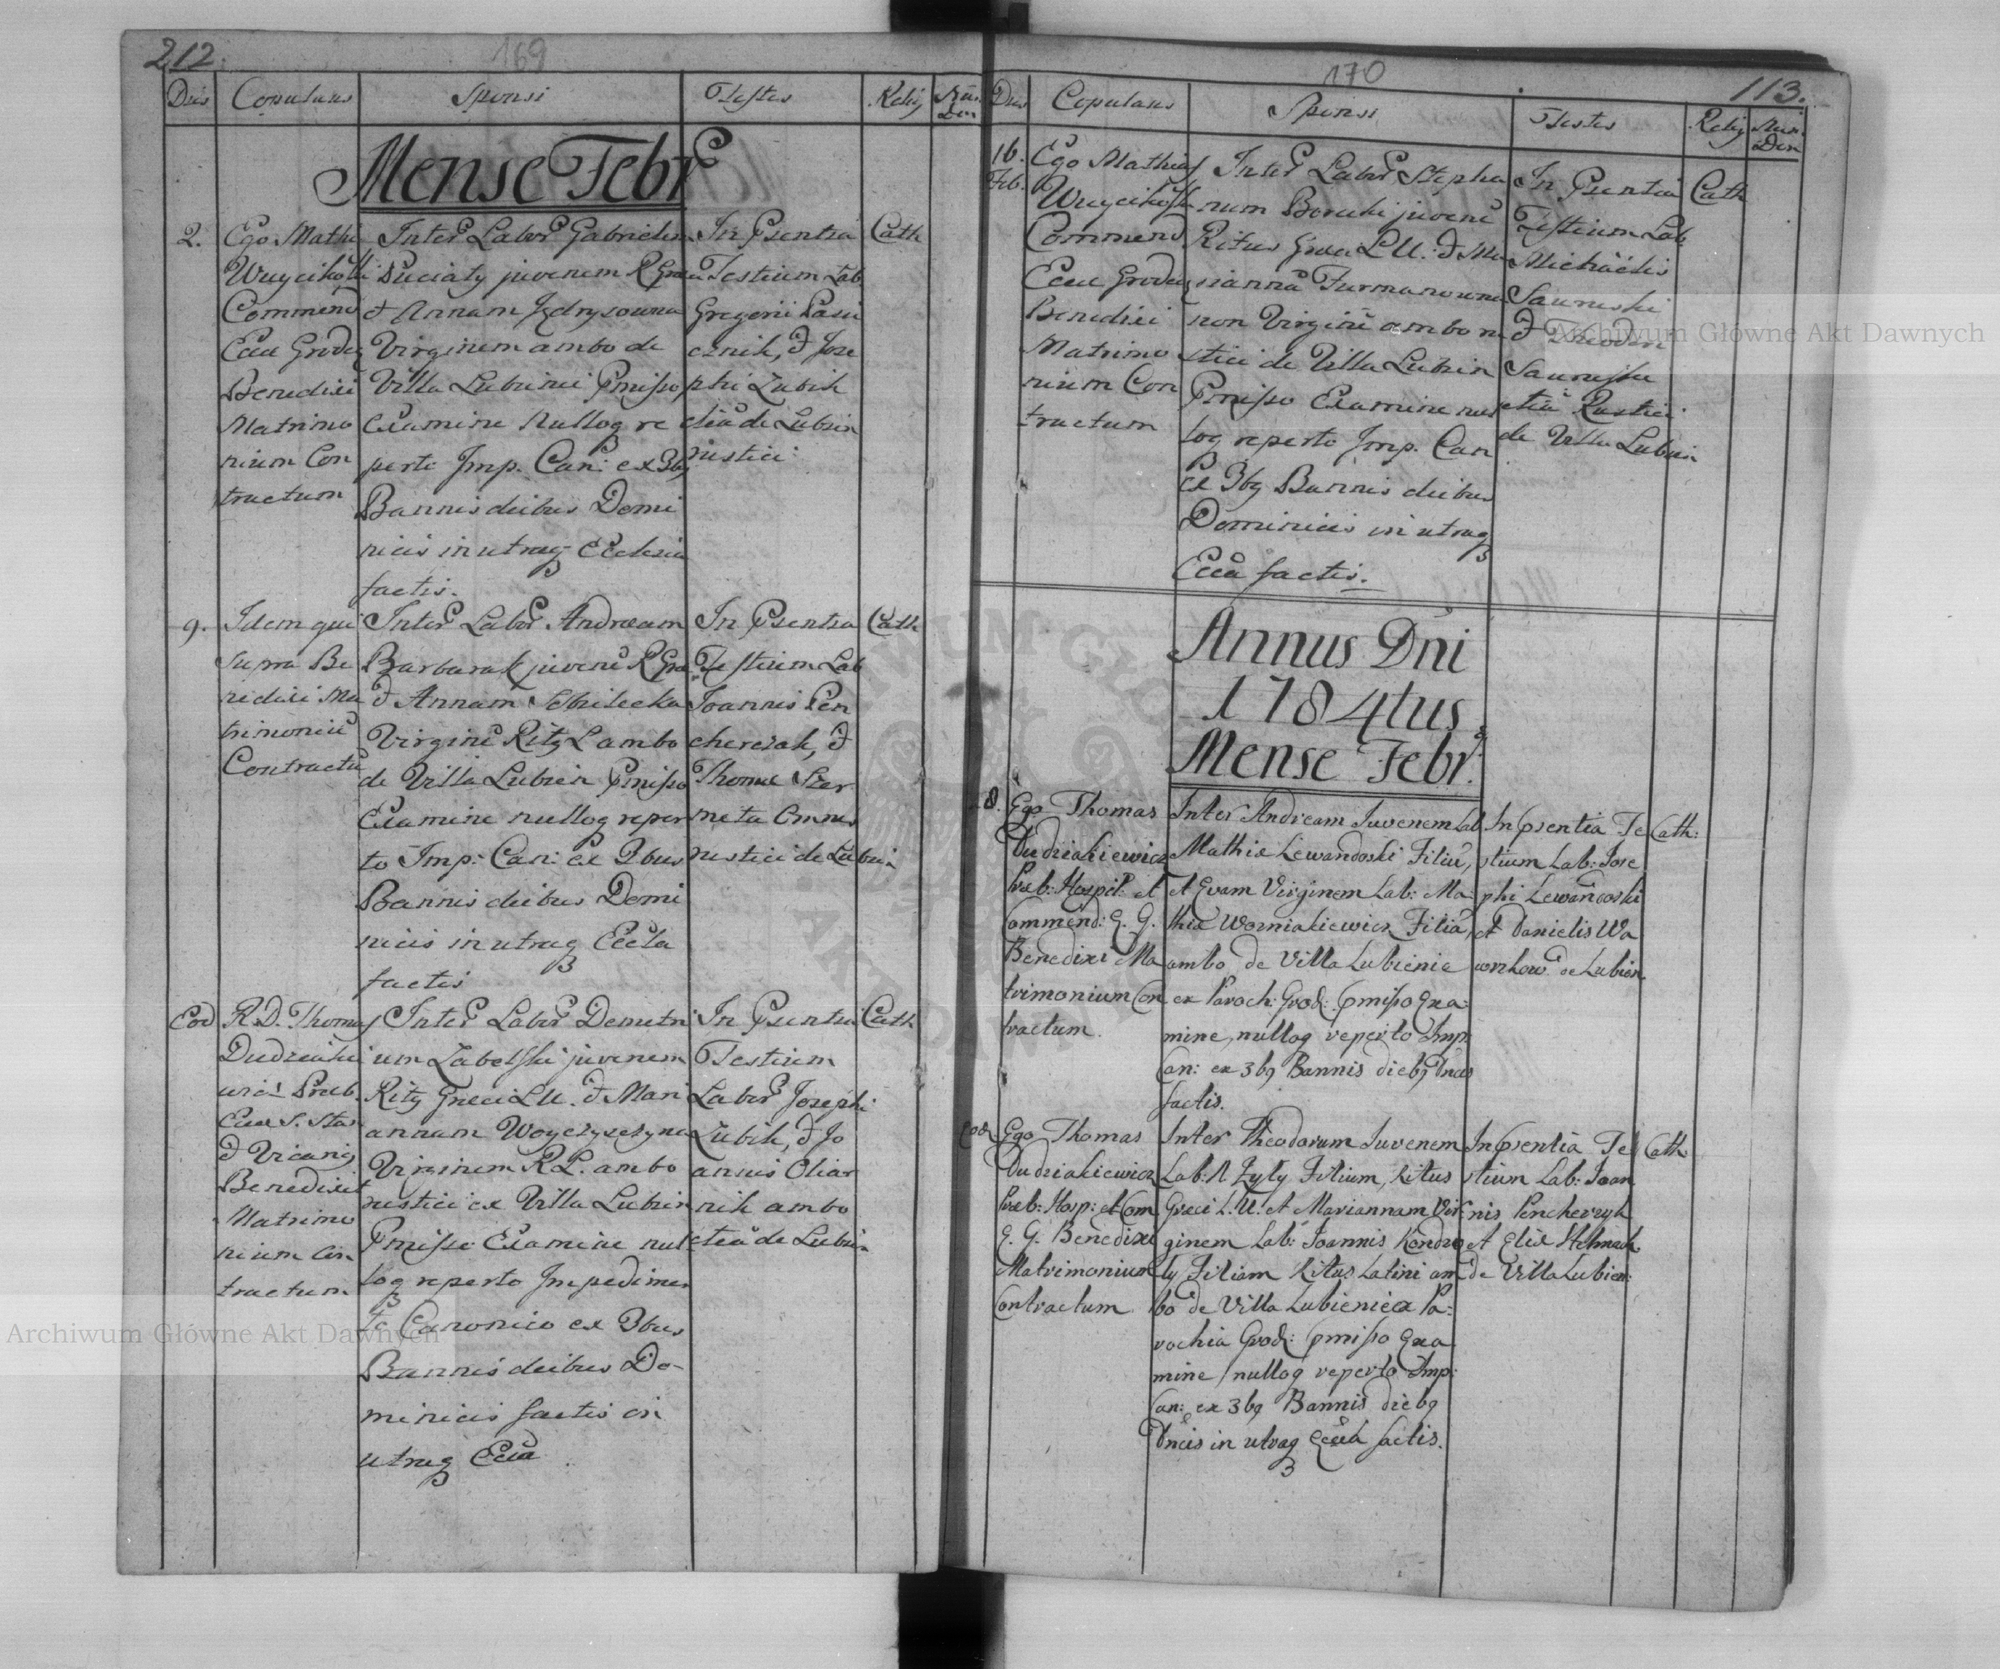 212.
169
Dies Copulans Sponsi Testes Relig Nun. Den
Mense Febr
2.
Ego Mathi
Wuycikoski
Commend
Eccae Grodec
Benedixi
Matrimo
nium Con
tractum
Inter Labor Gabrielem
Suciaty juvenem R Graeci
& Annam Jędrysowna
Virginem ambo de
Villa Lubinici Pmisso
Examine nulloq re
perto Imp. Can: ex 3bq
Bannis diebus Domi
nicis in utraq Ecclesia
factis.
In Psentia
Testium Lab
Gregorii Pasie
cznik, & Jose
phi Zubik
de Lubien
rustici.
Cath
9.
Idem qui
supra Be
nedixi Ma
trimoniu
Contractu
Inter Labor Andream
Barbarak juvene R Gra
& Annam
Virgine Ritq L ambo
de Villa Lubien Pmisso
Examine nulloq reper
to Imp: Can: ex 3bus
Bannis diebus Domi
nicis in utraq Eccla
factis
In Psentia
Testium Lab
Joannis Pen
cherzak, &
Thomae Szer
meta omnes
rustici de Lubien
Cath
Eod
R. D. Thomas
Dudziaki
wicz Praeb.
Eccae S. Stan
& Vicariq
Benedixit
Matrimo
nium Con
tractum
Inter Labor Demetri
um Zabelski juvenem
Ritq Graeci L U. & Mari
annam Woyczyszyna
Virginem R L. ambo
rustici ex Villa Lubien
Pmisso Examine nul
loq reperto Impedimen
to Canonico ex 3bus
Bannis diebus Do-
minicis factis in
utraq Ecca
In Psentia
Testium
Labor Josephi
Zubik, & Jo
annis Oliar
nik ambo
de Lubien
Cath
170
113.
Dies Copulans Sponsi Testes Relig Nun. Den
16.
Feb.
Ego Mathias
Wuycikoski
Commend
Eccae Grodec
Benedixi
Matrimo
nium Con
tractum
Inter Labor Stepha
num Borucki juvene
Ritus Graeci L U: & Ma
rianna Furmanowna
non Virgine ambo ru
stici de Villa Lubien
Pmisso Examine nul
loq reperto Imp. Can
ex 3bq Bannis diebus
Dominicis in utraq
Ecca factis.
In Psentia
Testium Lab
Michaelis
Sauruski
& Theodori
Rustici
de Villa Lubien
Cath
Annus Dni
1784tus
Mense Febr.
8.
Ego Thomas
Dudziakiewicz
Praeb: Hospit: et
Commend: E. G.
Benedixi Ma
trimonium Con
tractum.
Inter Andream Juvenem Lab
Mathiae Lewandoski Filiu,
et Evam Virginem Lab: Ma
thiae Wozniakiewicz Filia,
ambo de Villa Lubienie
ex Paroch: Grod: Pmisso Exa:
mine, nulloq reperto Imp:
Can: ex 3bq Bannis diebq Dncis
factis.
In Psentia Te
stium Lab: Jose
phi Lewandoski
et Danielis Wa
de Lubien.
Cath:
Eod
Ego Thomas
Dudziakiewicz
Praeb: Hosp: et Com
E. G. Benedixi
Matrimonium
Contractum
Inter Theodorum Juvenem
Lab: N Zyły Filium, Ritus
Graeci L. U. et Mariannam Vir:
ginem Lab: Joannis Kondra
ty Filiam Ritus Latini am
bo de Villa Lubienie ex Pa:
rochia Grod: Pmisso Exa
mine, nulloq reperto Imp:
Can: ex 3bq Bannis diebq
Dncis in utraq Ecca factis.
In Psentia Te
stium Lab: Joan
nis Pencherzyk
et Eliae Stelmach
de Villa Lubien:
Cath
Archiwum Główne Akt Dawnych
Archiwum Główne Akt Dawnych